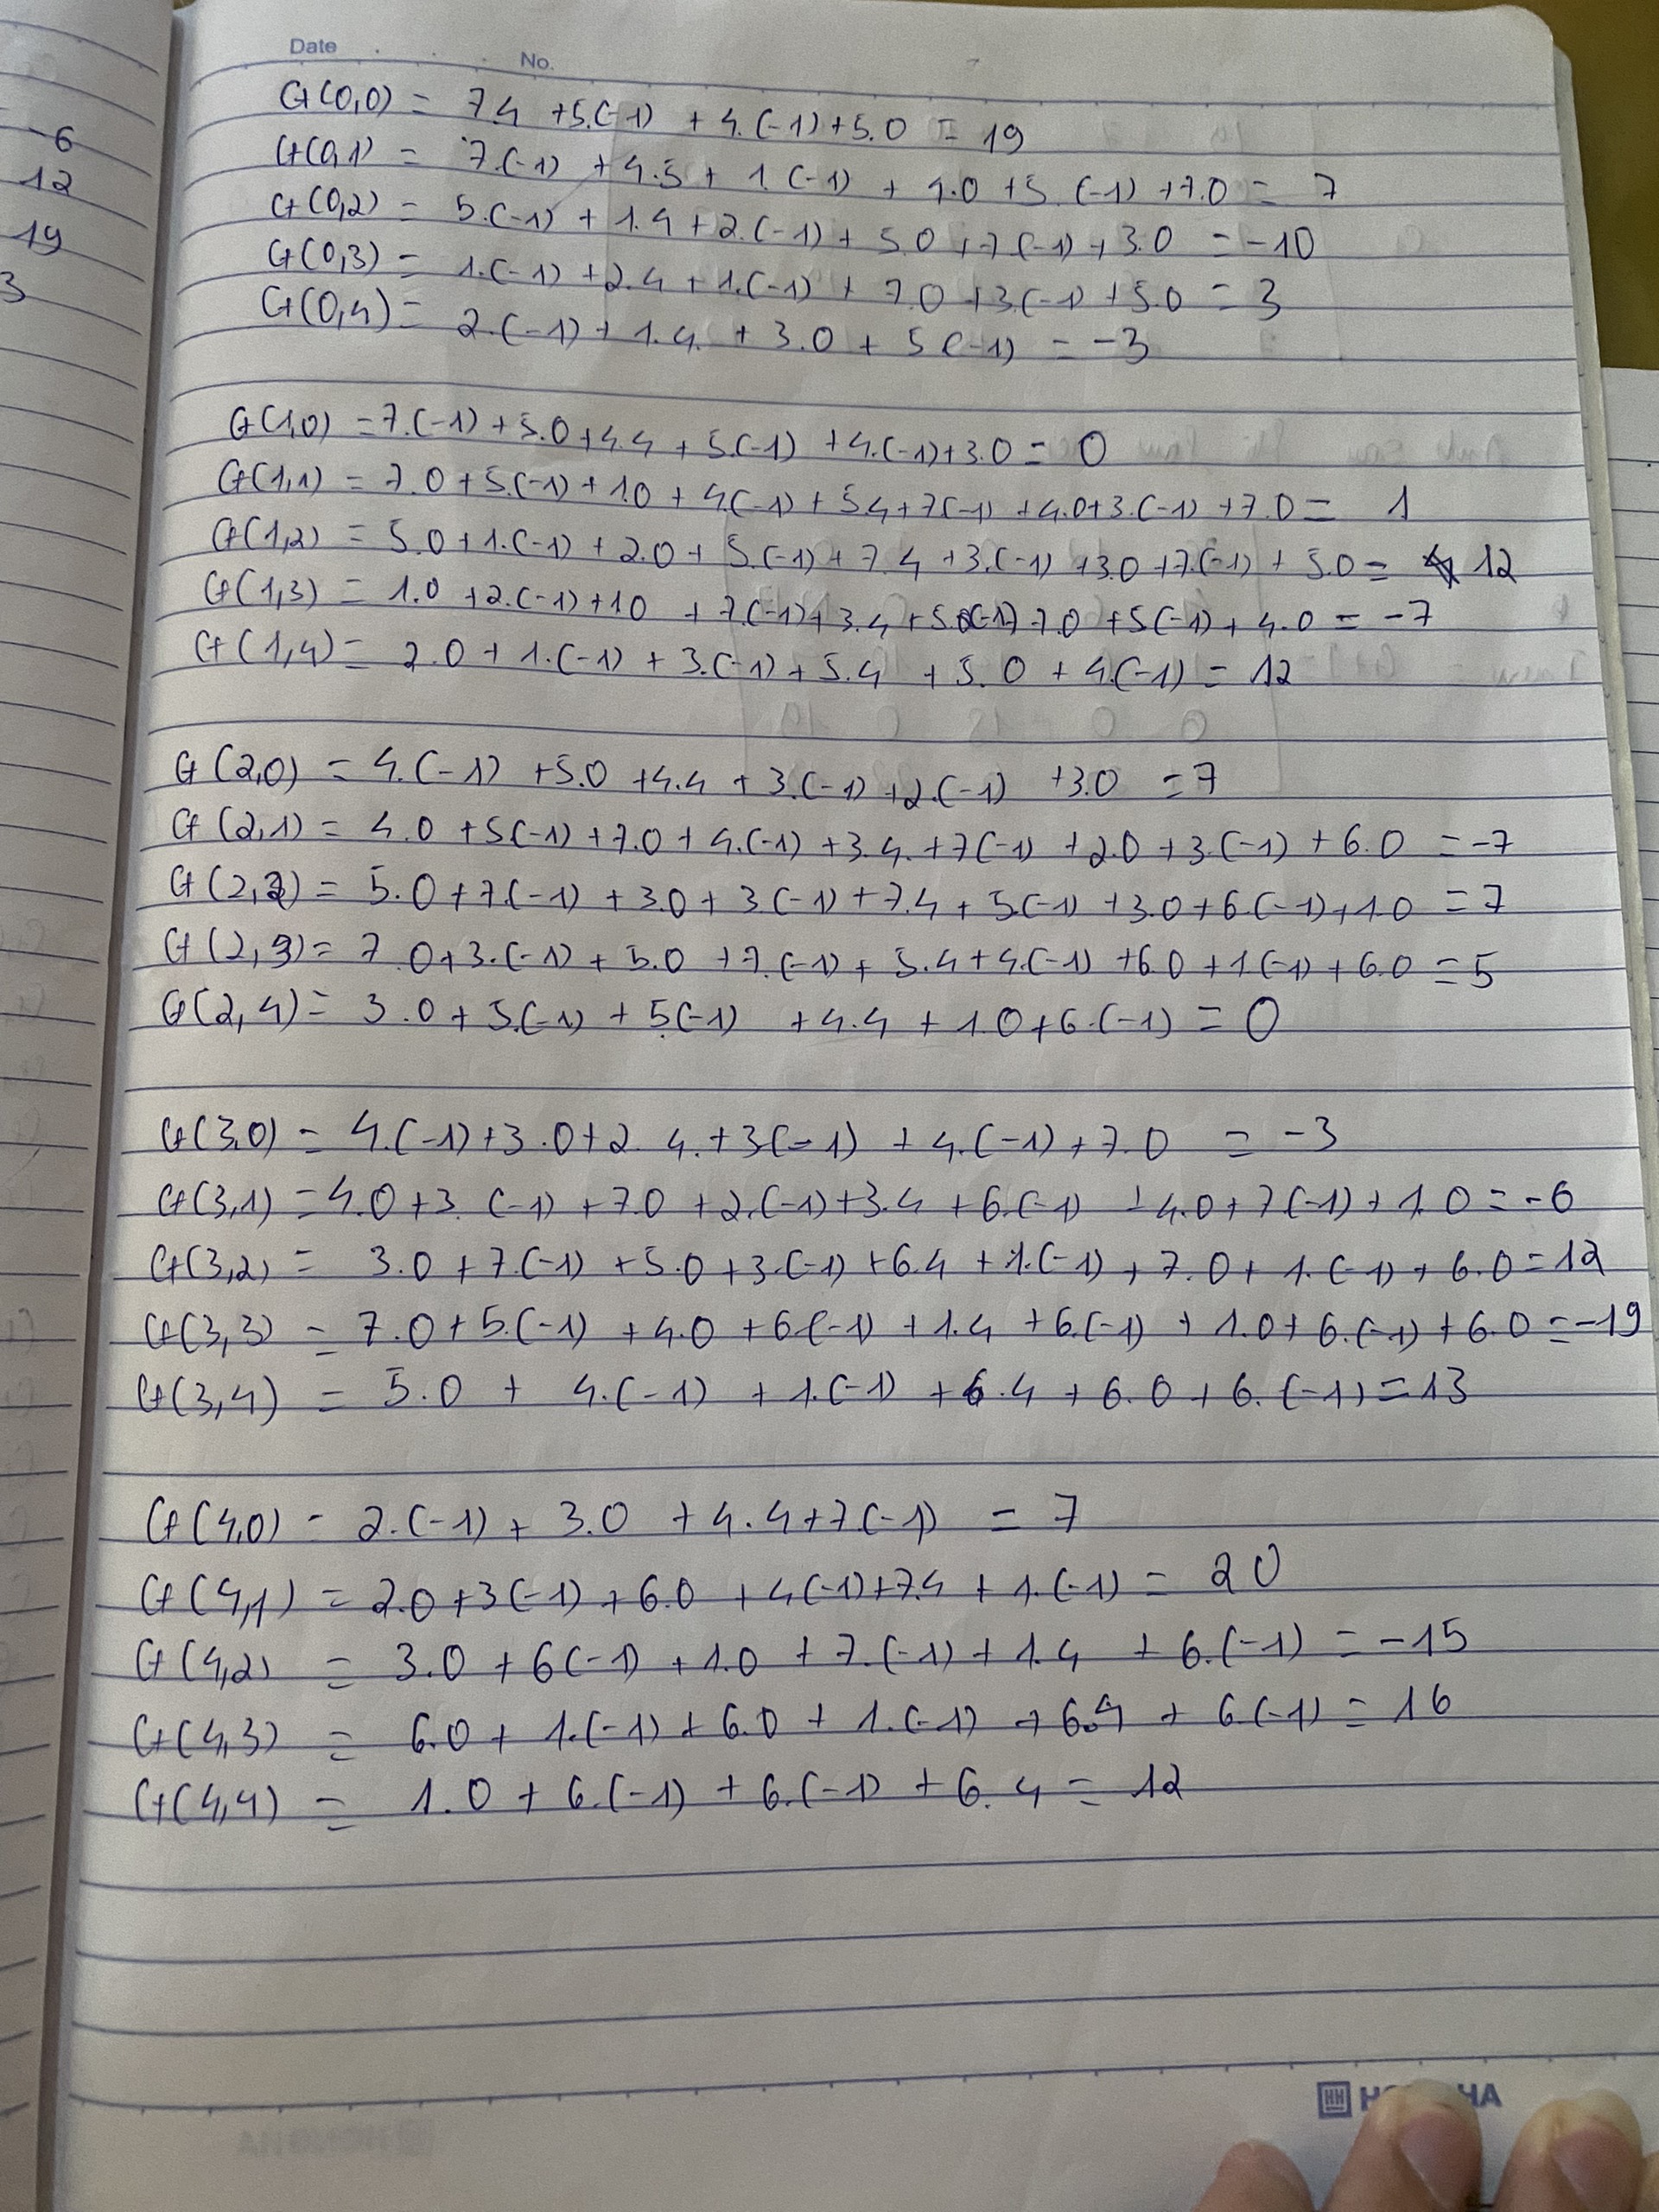 Date
No.
-6
12
-19
3
G(0,0) = 7.4 +5.(-1) + 4.(-1)+5.0 = 19
G(0,1) = 7.(-1) +4.5 + 1.(-1) + 4.0 +5.(-1) +7.0 = 7
G(0,2) = 5.(-1) + 1.4 +2.(-1) + 5.0 +7(-1) +3.0 = -10
G(0,3) = 1.(-1) +2.4 + 1.(-1) + 7.0 +3.(-1) +5.0 = 3
G(0,4) = 2.(-1) + 1.4. + 3.0 + 5(-1) = -3
G(1,0) =7.(-1) +5.0 +4.4 + 5.(-1) +4.(-1)+3.0 = 0
G(1,1) = 7.0 +5.(-1) +1.0 + 4.(-1) + 5.4 +7(-1) +4.0+3.(-1) +7.0 = 1
G(1,2) = 5.0 +1.(-1) + 2.0 + 5.(-1) + 7.4 +3.(-1) +3.0 +7.(-1) + 5.0 = 12
G(1,3) = 1.0 +2.(-1) +1.0 + 7.(-1) + 3.4 +5.(-1) 7.0 +5(-1) + 4.0 = -7
G(1,4) = 2.0 + 1.(-1) + 3.(-1) + 5.4 + 5.0 + 4.(-1) = 12
G(2,0) = 4.(-1) +5.0 +4.4 + 3.(-1) +2.(-1) +3.0 = 7
G(2,1) = 4.0 +5(-1) +7.0 + 4.(-1) +3.4. +7(-1) +2.0 +3.(-1) + 6.0 = -7
G(2,2) = 5.0 +7(-1) +3.0 + 3.(-1) +7.4 + 5.(-1) +3.0 +6.(-1) +1.0 = 7
G(2,3) = 7.0+3.(-1) + 5.0 +7.(-1) + 5.4 +4.(-1) +6.0 +1.(-1) +6.0 = 5
G(2,4) = 3.0 + 5.(-1) + 5(-1) +4.4 + 1.0 +6.(-1) = 0
G(3,0) = 4.(-1) +3.0 +2.4. +3(-1) + 4.(-1) + 7.0 = -3
G(3,1) = 4.0 +3.(-1) + 7.0 +2.(-1) +3.4 +6.(-1) +4.0 +7.(-1) + 1.0 = -6
G(3,2) = 3.0 + 7.(-1) +5.0 +3.(-1) +6.4 +1.(-1) + 7.0 + 1.(-1) + 6.0 = 12
G(3,3) = 7.0 + 5.(-1) +4.0 +6.(-1) +1.4 +6.(-1) + 1.0 + 6.(-1) +6.0 = -19
G(3,4) = 5.0 + 4.(-1) + 1.(-1) +6.4 + 6.0 + 6.(-1) = 13
G(4,0) = 2.(-1) + 3.0 +4.4 +7(-1) = 7
G(4,1) = 2.0 +3(-1) +6.0 +4(-1) +7.4 + 1.(-1) = 20
G(4,2) = 3.0 + 6(-1) +1.0 + 7.(-1) + 1.4 + 6.(-1) = -15
G(4,3) = 6.0 + 1.(-1) + 6.0 + 1.(-1) + 6.4 + 6.(-1) = 16
G(4,4) = 1.0 + 6.(-1) + 6.(-1) + 6.4 = 12